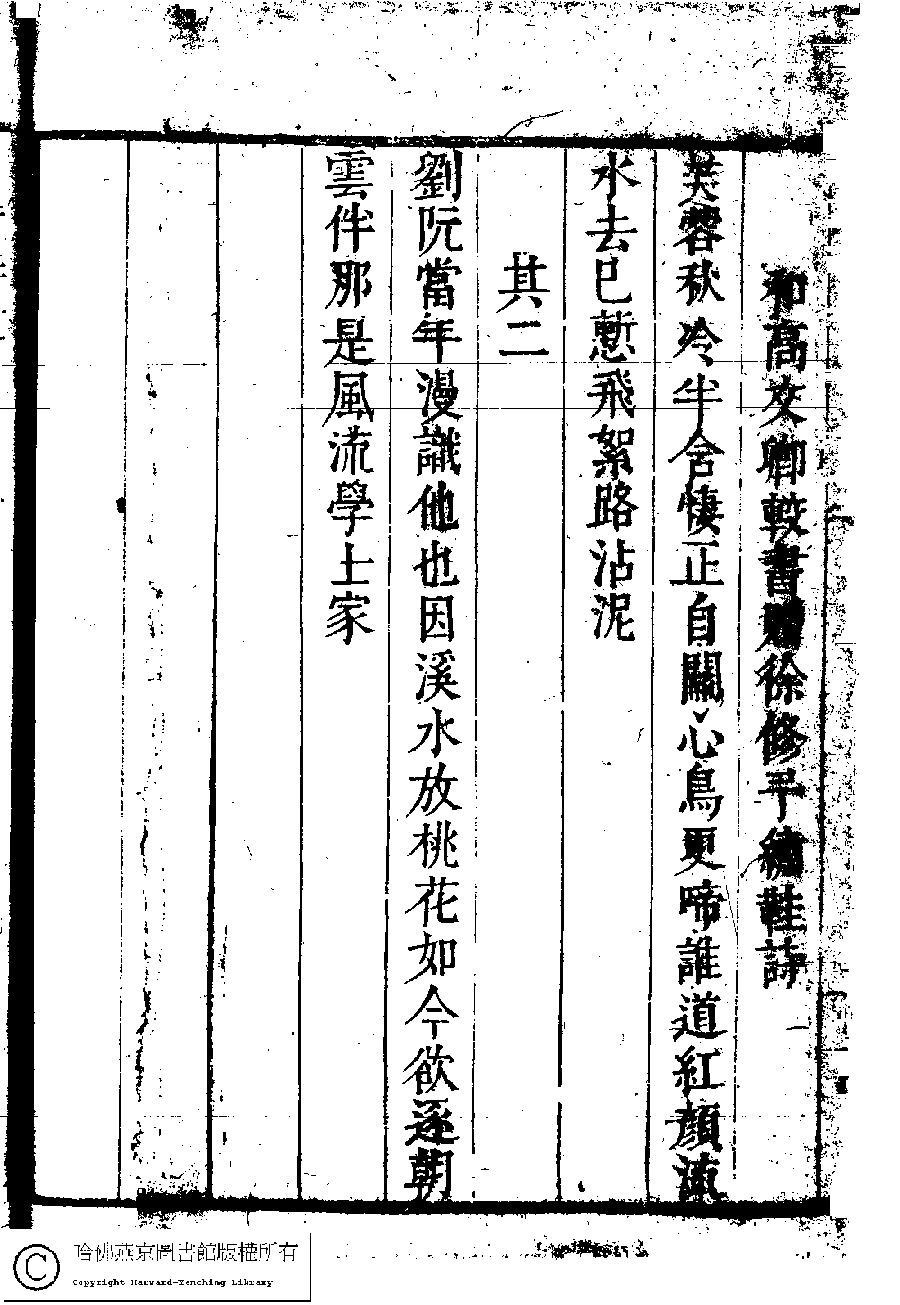 和高文卿較書贈徐修予繡鞋詩
芙蓉秋冷半含悽正自關心鳥更啼誰道紅顏凍
水去已慙飛絮路沾泥
其二
劉阮當年漫識他也因溪水放桃花如今欲逐朝
雲伴那是風流學士家
哈佛燕京圖書館版權所有
Copyright Harvard-Yenching Library